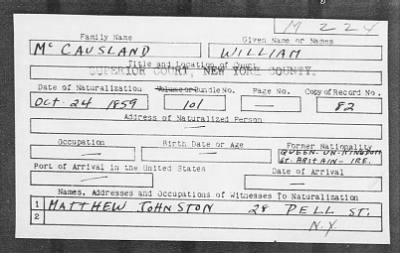 M 224
Family Name Given Name or Names
McCAUSLAND WILLIAM
Title and Location of Court
SUPERIOR COURT, NEW YORK COUNTY.
Date of Naturalization Volume or Bundle No. Page No. Copy of Record No.
Oct. 24 1859 101 — 82
Address of Naturalized Person
—
Occupation Birth Date or Age Former Nationality
— — QUEEN UN. KINGDOM
GT. BRITAIN - IRE.
Port of Arrival in the United States Date of Arrival
— —
Names, Addresses and Occupations of Witnesses To Naturalization
1 MATTHEW JOHNSTON 28 PELL ST.
2 N.Y.